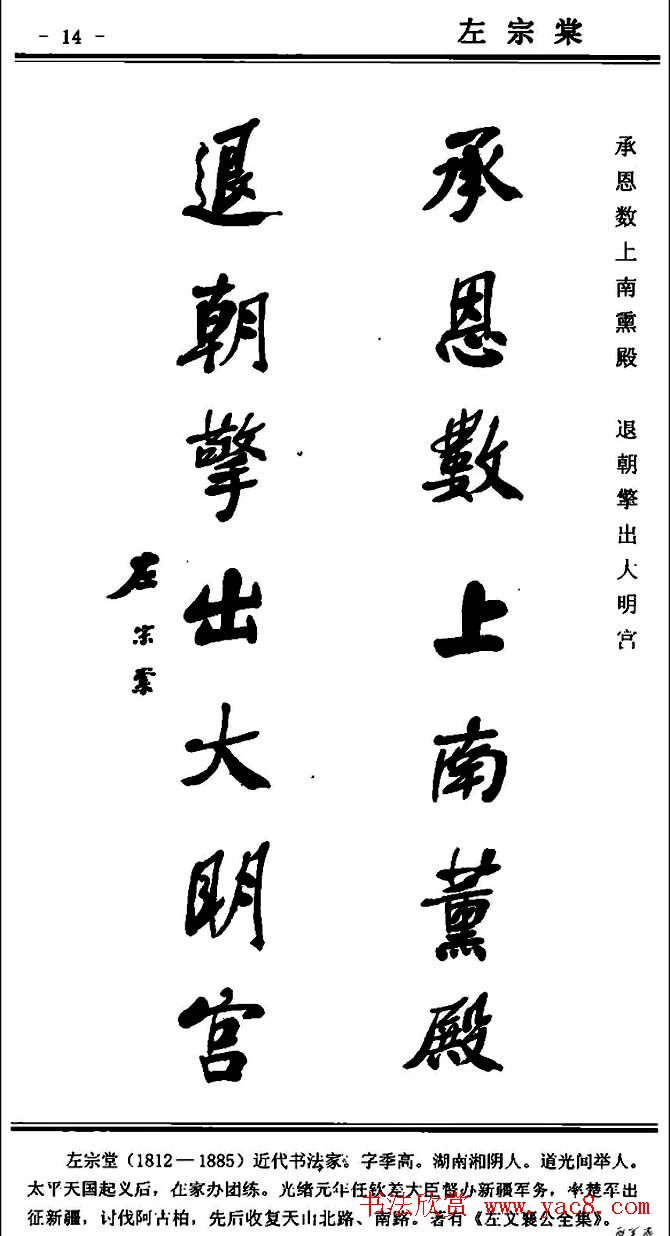 - 14 -
左宗棠
承恩数上南熏殿 退朝擎出大明宫
承恩數上南薰殿
退朝擎出大明宫
左宗棠
左宗堂（1812－1885）近代书法家。字季高。湖南湘阴人。道光间举人。
太平天国起义后，在家办团练。光绪元年任钦差大臣督办新疆军务，率楚军出
征新疆，讨伐阿古柏，先后收复天山北路、南路。著有《左文襄公全集》。
书法欣赏
www.yac8.com